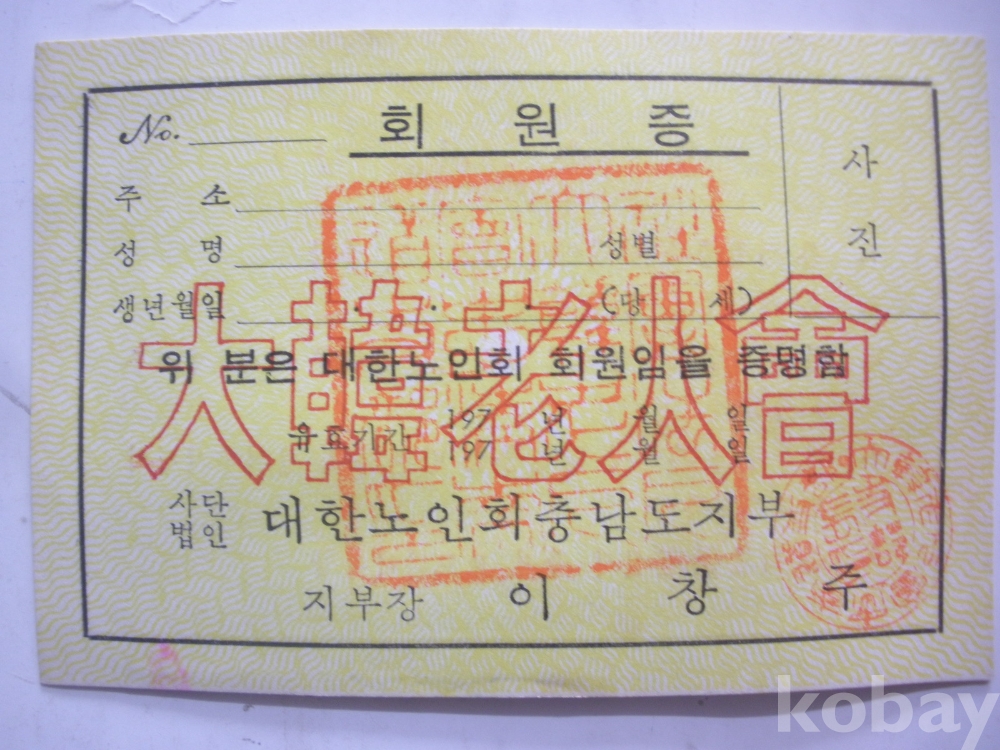 No. 회원증
사진
주소
성명 성별
생년월일 . . . (당 세)
大韓老人會
위 분은 대한노인회 회원임을 증명함
197 년 월 일
유효기간
197 년 월 일
사단
법인
대한노인회충남도지부
지부장 이창주
kobay